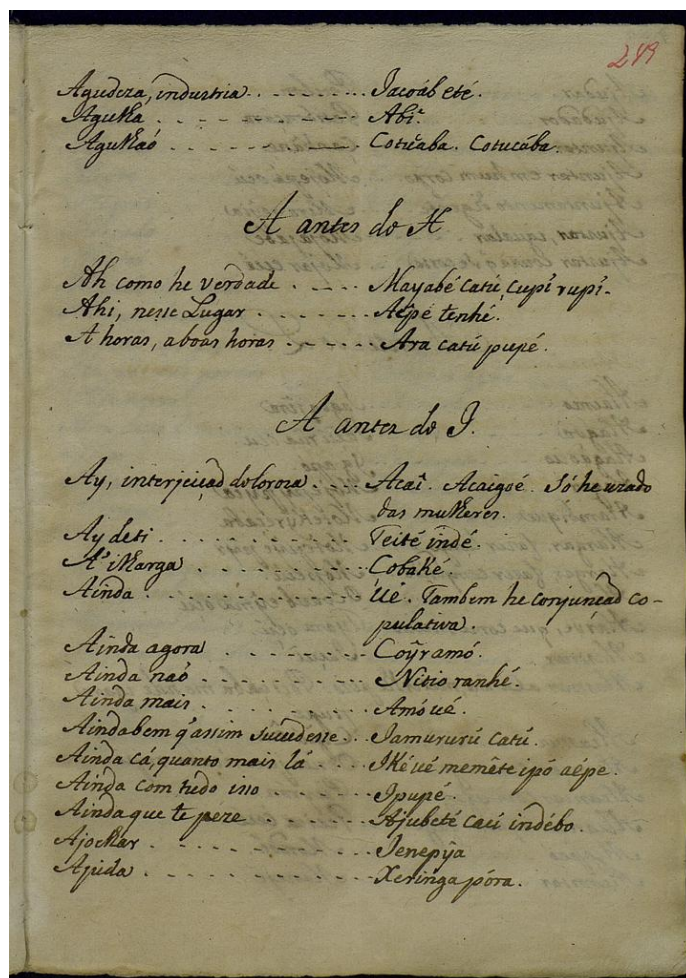 249
Agudeza, industria . . . . . . . . Jacoáb eté.
Agulha . . . . . . . . . . Abí.
Agulhaõ . . . . . . . . . . Cotucaba. Cotucába.
A antes do H
Ah como he verdade . . . . . Mayabé catú, çupî rupî.
Ahi, nesse Lugar . . . . . . Aépé tenhé.
A horas, a boas horas . . . . . . Ara catú pupé.
A antes do J.
Ay, interjeiçaõ doloroza . . . . Acaî. Acaigoé. Só he uzado
das mulheres.
Ay de ti . . . . . . . . . . . Teité indé.
A' ilharga . . . . . . . . . Cobaké.
Ainda . . . . . . . . . . . Ué. Tambem he conjunçaõ co-
pulativa.
Ainda agora . . . . . . . . . Coŷramó.
Ainda naõ . . . . . . . . . Nitio ranhé.
Ainda mais . . . . . . . . . Amó ué.
Ainda bem q' assim sucedesse . . Jamururú catú.
Ainda cá, quanto mais lá . . . Iké ué memête ipó aépe.
Ainda com tudo isso . . . . . . Ipupé.
Ainda que te peze . . . . . . . Ajubeté cací indébo.
Ajoelhár . . . . . . . . . . . Jenepŷa
Ajuda . . . . . . . . . . . Xeringa póra.